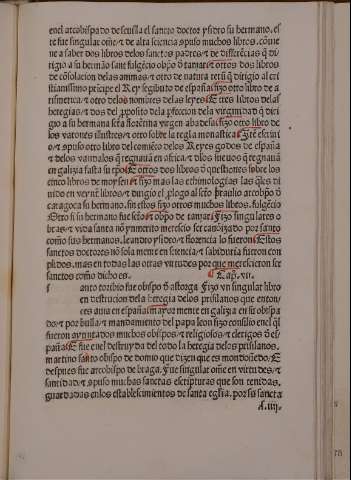 enel arçobispado de seuilla el santo doctor ysidro su hermano. es
te fue singular om̃e ⁊ de alta sciencia ⁊ puso muchos libros. cõuie
ne a saber dos libros delos sanctos padres ⁊ de differẽcias q̃ di
rigio a su hermão sant fulgẽcio obp̃o ⁊ otros dos libros
de cõsolacion delas animas ⁊ otro de natura q̃ dirigio al cri
stianissimo principe el Rey segibuto de españa ⁊ fizo otro libro de a
rismetica ⁊ otro delos nombres delas leyes ⁊ tres libros delas
heregias ⁊ dos del p̱posito dela p̱feccion dela virginidad q̃ diri
gio a su hermana sc̃ta florẽtina virgen abadesa ⁊ fizo otro libro de
los varones illustres ⁊ otro sobre la regla monastica ⁊ escriui
o ⁊ puso otro libro del comiẽço delos Reyes godos de españa
⁊ delos vandalos q̃ regnauã en africa ⁊ delos sueuos q̃ regnauã
en galizia fasta su tp̃o ⁊ otro dos libros õ questiones sobre los
cinco libros de moysen ⁊ fizo mas las ethimologias las q̃les di
uido en veynte libros ⁊ dirigio el plogo al sc̃to braulio arçobp̃o õ
caragoça su hermano. sin estos fizo otros muchos libros. fulgẽcio
otro sĩ su hermano fue sc̃to ⁊ obp̃o fizo singulares o
bras ⁊ vida santa nõ ynmerito merecio ser canõizado por santo
como sus hermanos. leandro ysidro ⁊ florencia lo fueron ⁊ estos
sanctos doctores nõ sola mente en sciencia ⁊ sabiduria fueron con
plidos. mas en todas las otras virtudes por que merescieron ser
sanctos como dicho es. ¶ Cap. vij.
s anto toribio fue obispo õ astorga ⁊ fizo vn singular libro
en destrucion dela heregia delos prisilanos que enton/
ces auia en españa ⁊ mayor mente en galizia en su obispa
do/ ⁊ por bulla ⁊ mandamiento del papa leon fizo consilio enel q̃l
fueron ayuntados muchos obispos ⁊ religiosos ⁊ clerigos õ es/
paña ⁊ fue enel destruyda del todo la heregia delos prisilanos.
martino santo obispo de domio que dizen que es mondoñedo/ ⁊
despues fue arçobispo de braga. fue singular om̃e en virtudes/ ⁊
santidad/ ⁊ ⁊ puso muchas sanctas escripturas que son tenidas.
guardadas enlos establescimientos de santa eglia. por sus sancta